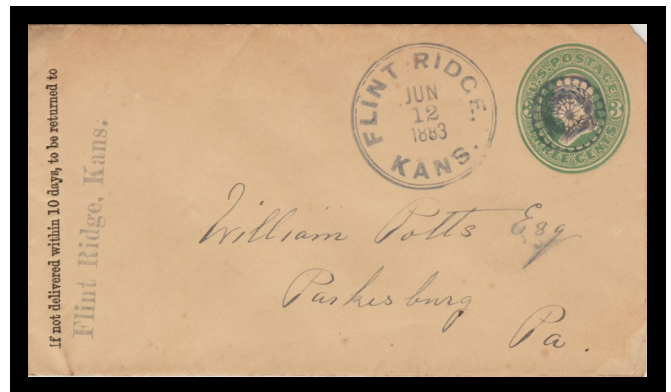 If not delivered within 10 days, to be returned to
Flint Ridge, Kans.
FLINT RIDGE,
JUN
12
1883
KANS.
U.S. POSTAGE
3 3
THREE CENTS
William Potts Esq
Parkesburg
Pa.